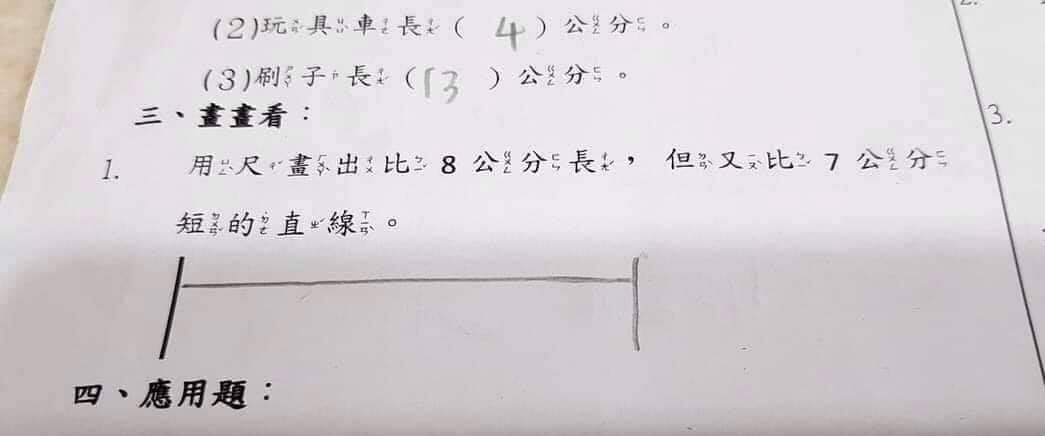 (2)玩具車長( 4 )公分。
(3)刷子長(13 )公分。
三、畫畫看：
3.
1. 用尺畫出比 8 公分長， 但又比 7 公分
短的直線。
四、應用題：